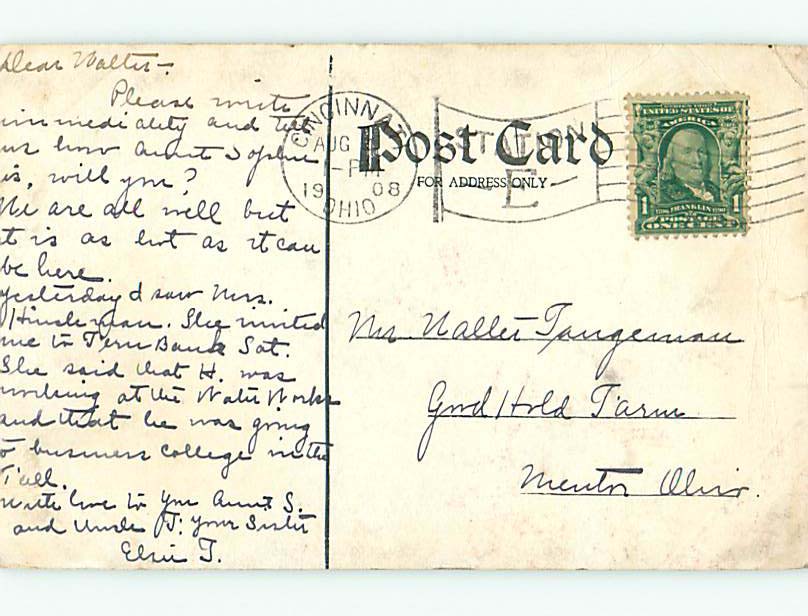 Dear Walter—
Please write
immediately and tell
us how Aunt Sophie
is, will you?
We are all well but
it is as hot as it can
be here.
Yesterday I saw Mrs.
Hinsleman. She invited
me to Fern Bank Sat.
She said that H. was
working at the Water Works
and that he was going
to business college in the
Fall.
With love to you Aunt S.
and Uncle J: your Sister
Elsie T.
CINCINNATI
AUG
-PM
1908
OHIO
STATION
E
Post Card
FOR ADDRESS ONLY
UNITED STATES OF
AMERICA
1 FRANKLIN 1
POSTAGE
ONE CENT
Mr. Walter Tangeman
Good Hold Farm
Mentor Ohio.